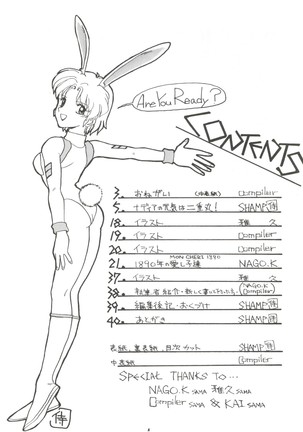 Are You Ready?
CONTENTS
3. おねがい (中表紙) Compiler
5. ナディアの天気は二重丸! SHAMP侍
18. イラスト 雅久
19. イラスト Compiler
20. イラスト Compiler
MON CHERI 1890
21. 1890年の愛し子達 NAGO.K
37. イラスト 雅久
38. 執筆者紹介 (NAGO.K Compiler)
39. 編集後記・おくづけ SHAMP侍
40. あとがき SHAMP侍
表紙、裏表紙、目次カット SHAMP侍
中表紙 Compiler
SPECIAL THANKS TO...
NAGO.K SAMA 雅久 SAMA
Compiler SAMA & KAI SAMA
侍